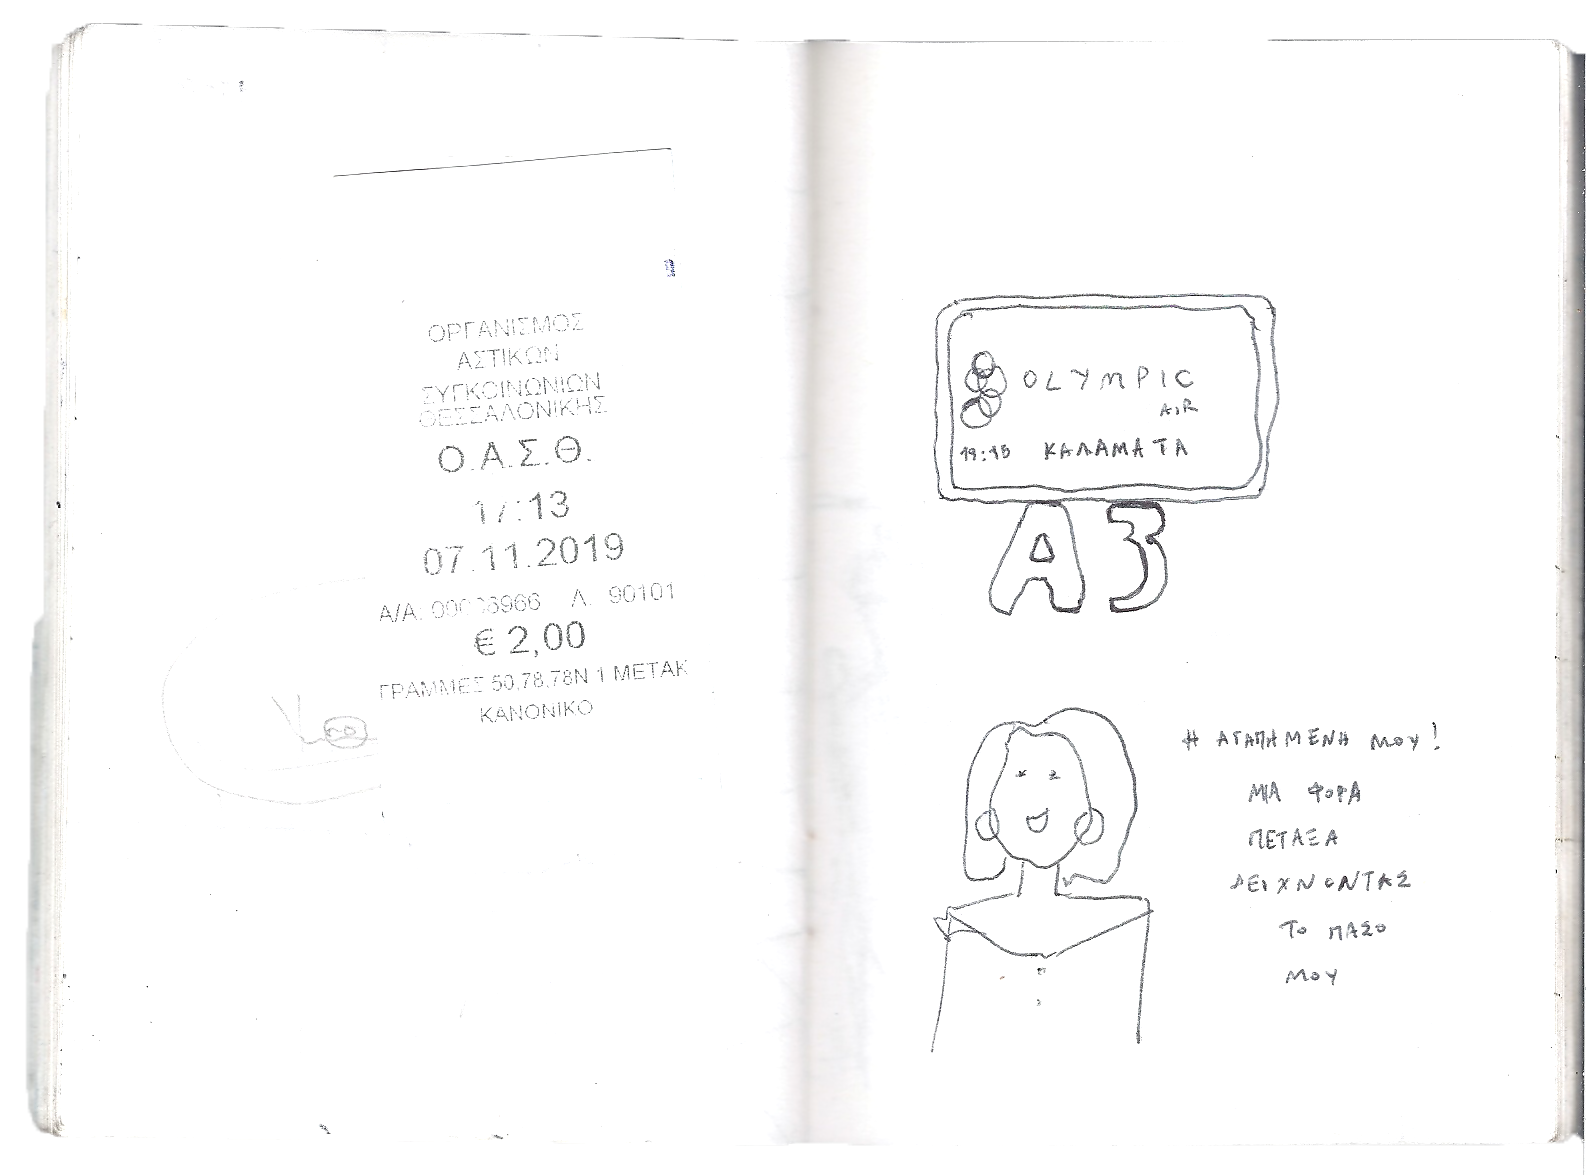 ΟΡΓΑΝΙΣΜΟΣ
ΑΣΤΙΚΩΝ
ΣΥΓΚΟΙΝΩΝΙΩΝ
ΘΕΣΣΑΛΟΝΙΚΗΣ
Ο.Α.Σ.Θ.
17:13
07.11.2019
Α/Α: Λ. 90101
€ 2,00
ΓΡΑΜΜΕΣ 50,78,78Ν 1 ΜΕΤΑΚ
ΚΑΝΟΝΙΚΟ
OLYMPIC
AIR
19:15 ΚΑΛΑΜΑΤΑ
A3
Η ΑΓΑΠΗΜΕΝΗ ΜΟΥ!
ΜΙΑ ΦΟΡΑ
ΠΕΤΑΞΑ
ΔΕΙΧΝΟΝΤΑΣ
ΤΟ ΠΑΣΟ
ΜΟΥ